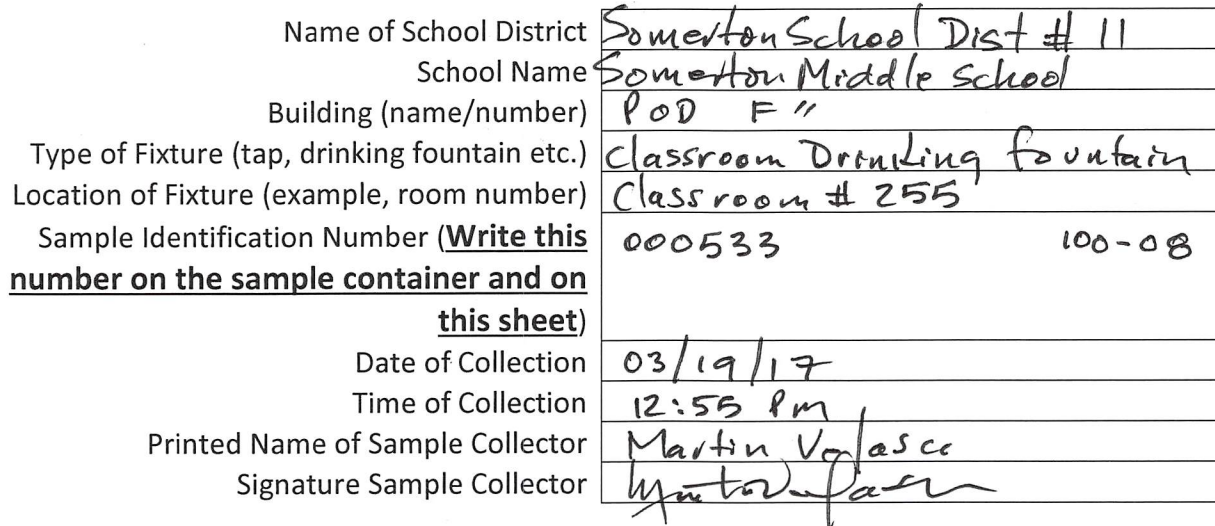 Name of School District Somerton School Dist # 11
School Name Somerton Middle School
Building (name/number) POD F "
Type of Fixture (tap, drinking fountain etc.) Classroom Drinking fountain
Location of Fixture (example, room number) Classroom # 255
Sample Identification Number (Write this 000533 100-08
number on the sample container and on
this sheet)
Date of Collection 03/19/17
Time of Collection 12:55 Pm
Printed Name of Sample Collector Martin Velasco
Signature Sample Collector